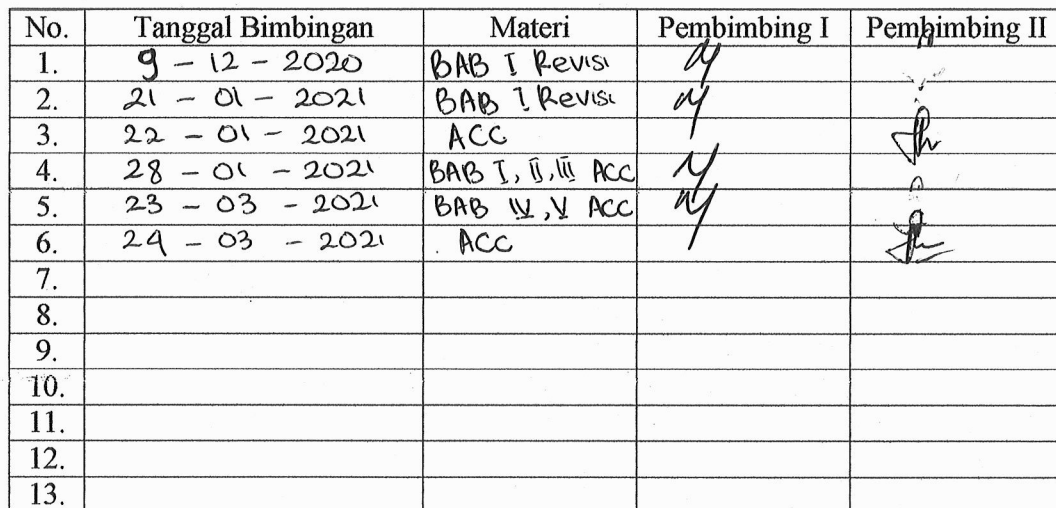 No. Tanggal Bimbingan Materi Pembimbing I Pembimbing II
1. 9 - 12 - 2020 BAB I Revisi
2. 21 - 01 - 2021 BAB I Revisi
3. 22 - 01 - 2021 ACC
4. 28 - 01 - 2021 BAB I, II, III ACC
5. 23 - 03 - 2021 BAB IV, V ACC
6. 24 - 03 - 2021 ACC
7.
8.
9.
10.
11.
12.
13.